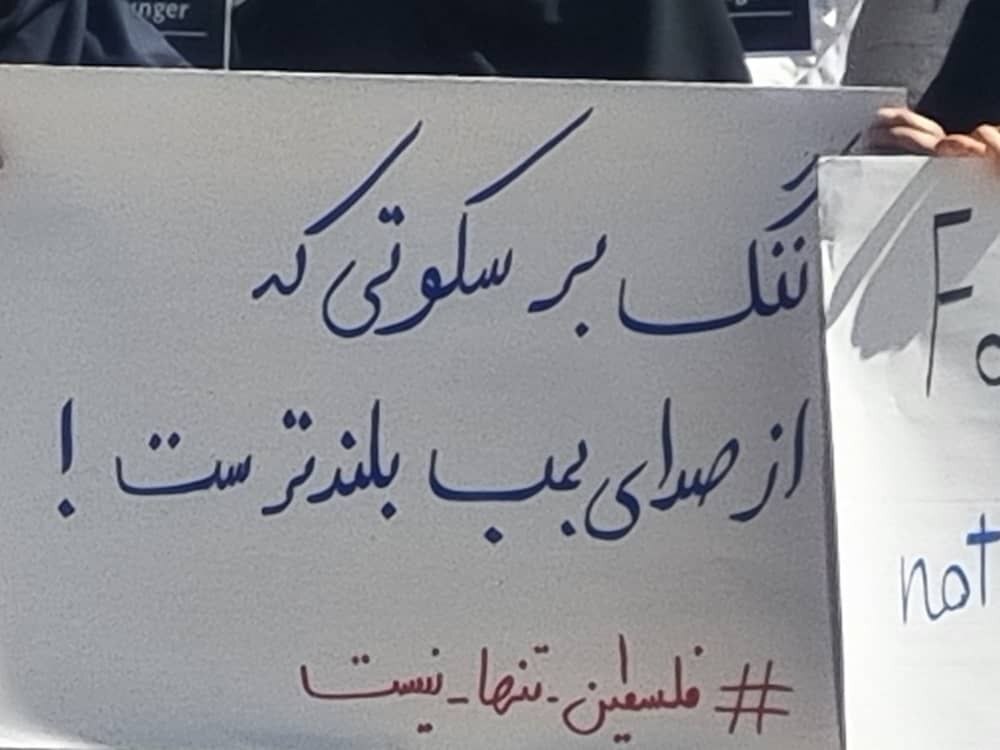 ننگ بر سکوتی که
از صدای بمب بلندتر ست !
#فلسطین_تنها_نیست
not